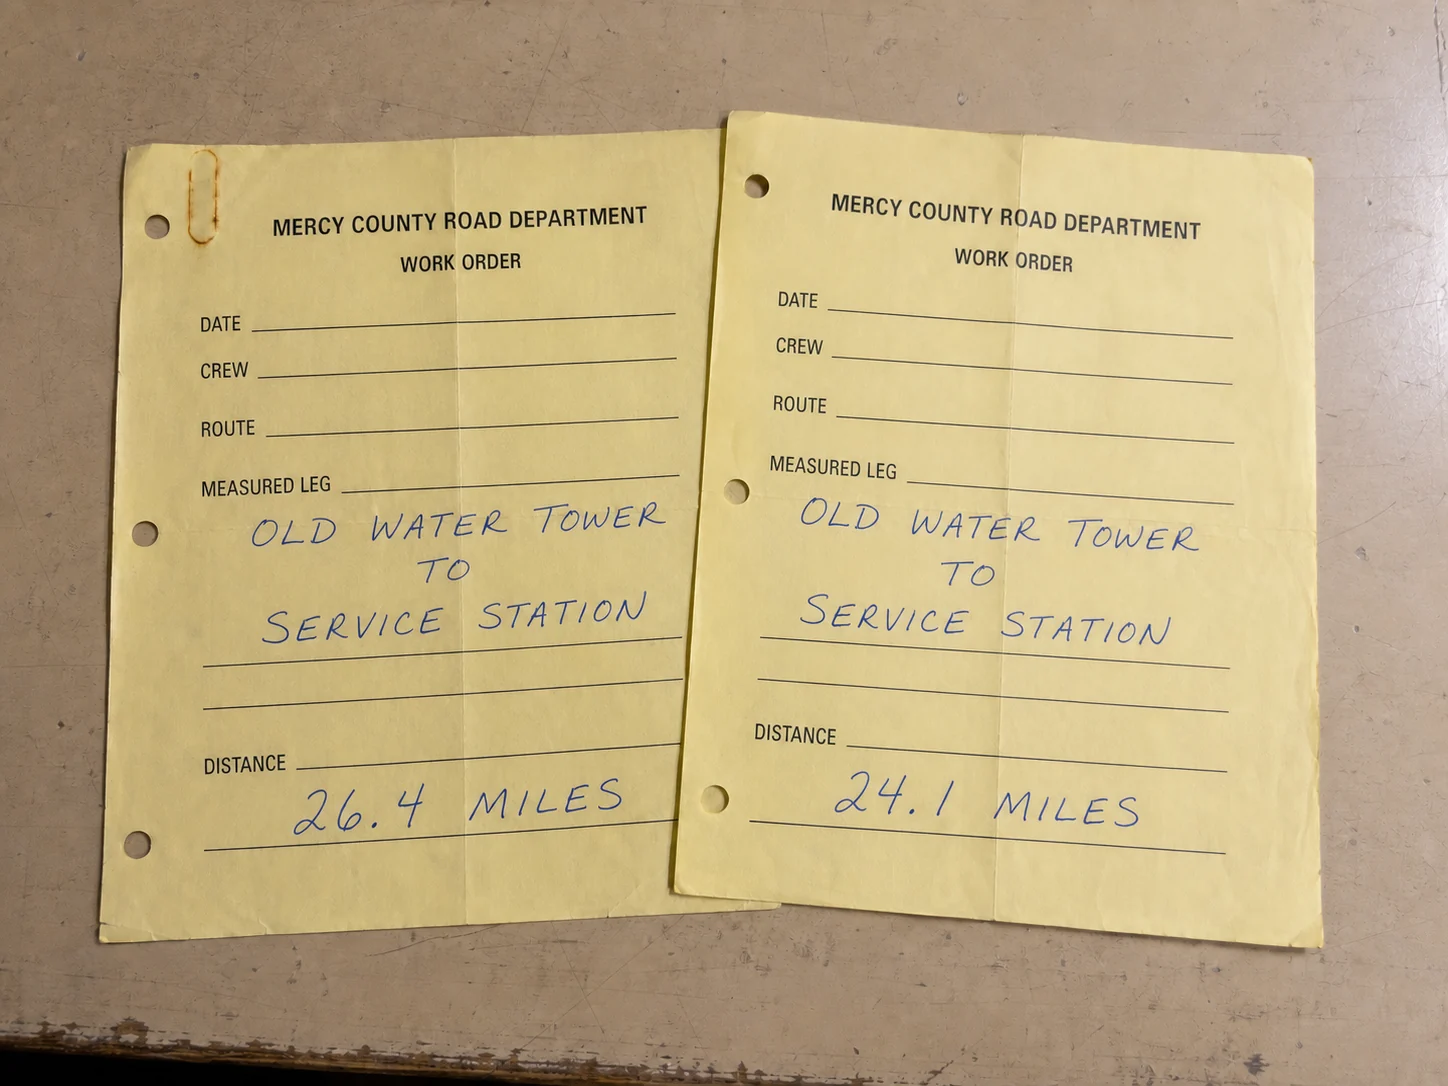 MERCY COUNTY ROAD DEPARTMENT
WORK ORDER
DATE
CREW
ROUTE
MEASURED LEG
OLD WATER TOWER
TO
SERVICE STATION
DISTANCE
26.4 MILES
MERCY COUNTY ROAD DEPARTMENT
WORK ORDER
DATE
CREW
ROUTE
MEASURED LEG
OLD WATER TOWER
TO
SERVICE STATION
DISTANCE
24.1 MILES